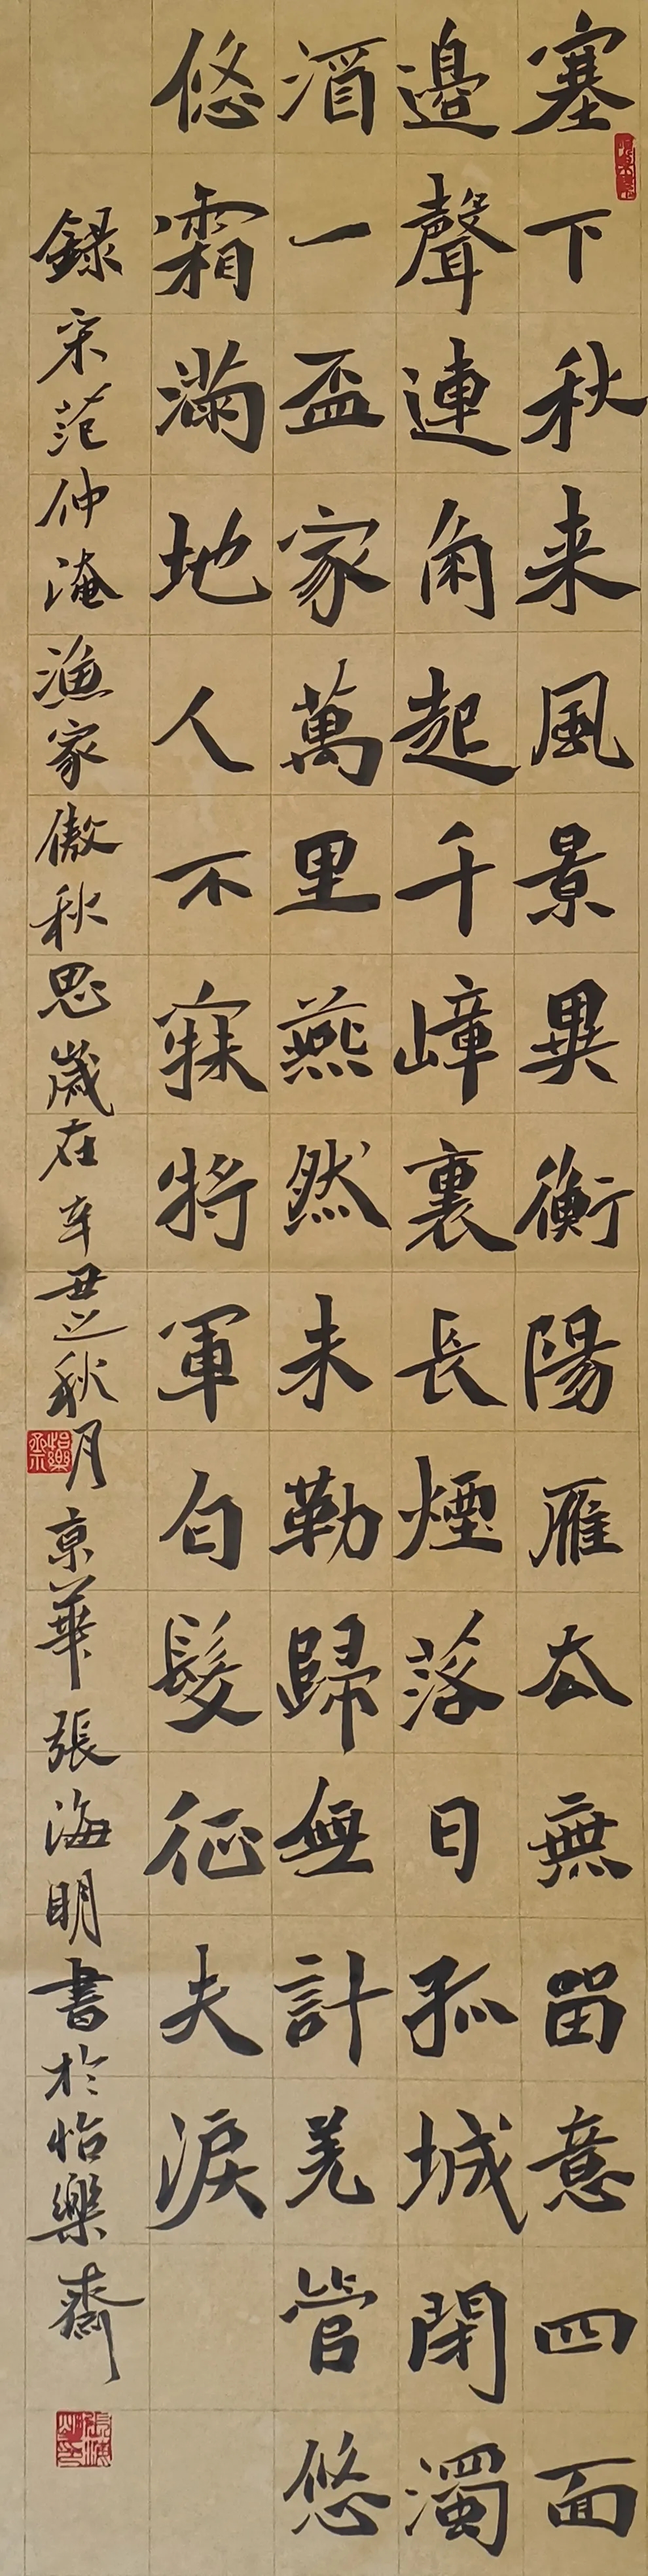 塞下秋来風景異衡陽雁去無留意四面
邊聲連角起千嶂裏長煙落日孤城閉濁
酒一盃家萬里燕然未勒歸無計羌管悠
悠霜滿地人不寐將軍白髮征夫淚
録宋范仲淹漁家傲秋思歲在辛丑之秋月京華張海明書於怡樂齋
怡樂齋